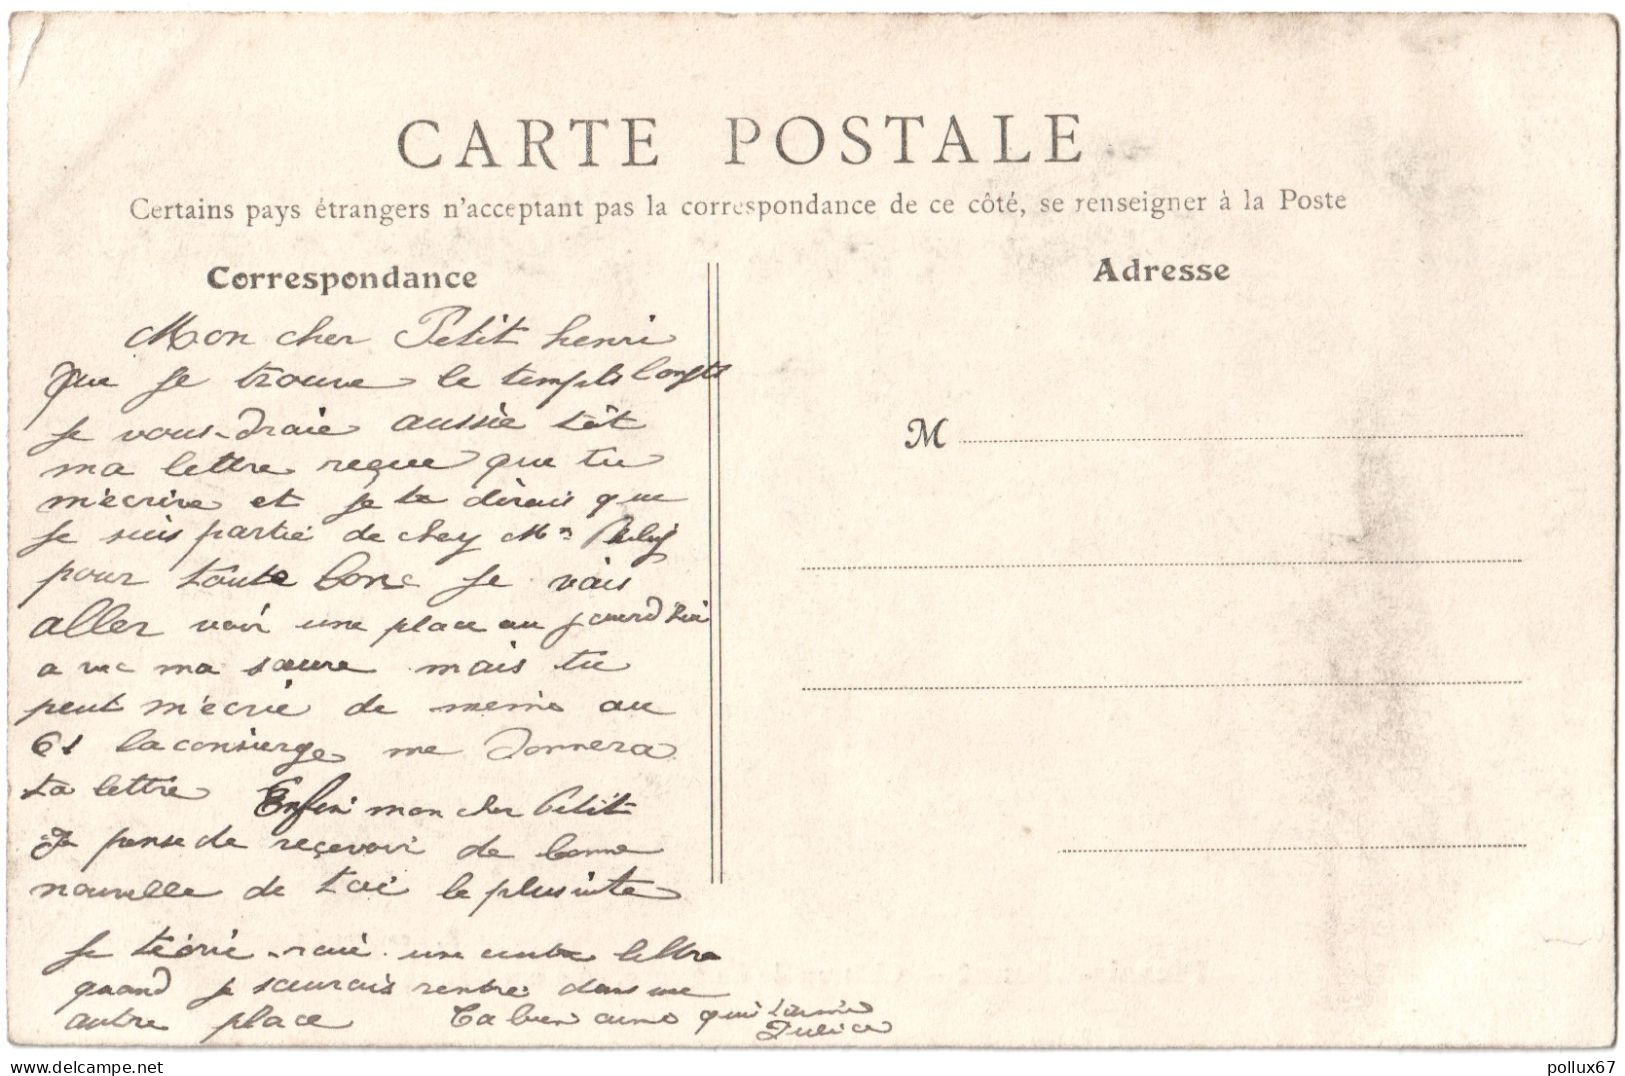 CARTE POSTALE
Certains pays étrangers n'acceptant pas la correspondance de ce côté, se renseigner à la Poste
Correspondance
Adresse
Mon cher Petit henri
que je trouve le temps longts
je vous-draie aussie tôt
ma lettre reçue que tu
m'ecrive et je te dirais que
je suis partie de chey Mr
pour toute bone je vais
aller voir une place au jourd'hui
a vec ma soeure mais tu
peut m'ecrie de meme au
61 la consierge me donnera
ta lettre Enfin mon cher Petit
Je pense de reçevoir de bonne
nouvelle de toi le plus vite
je técrie-raie une autre lettre
quand je saurais rentre dans une
autre place Ta bien aimé qui t'aime
M
pollux67